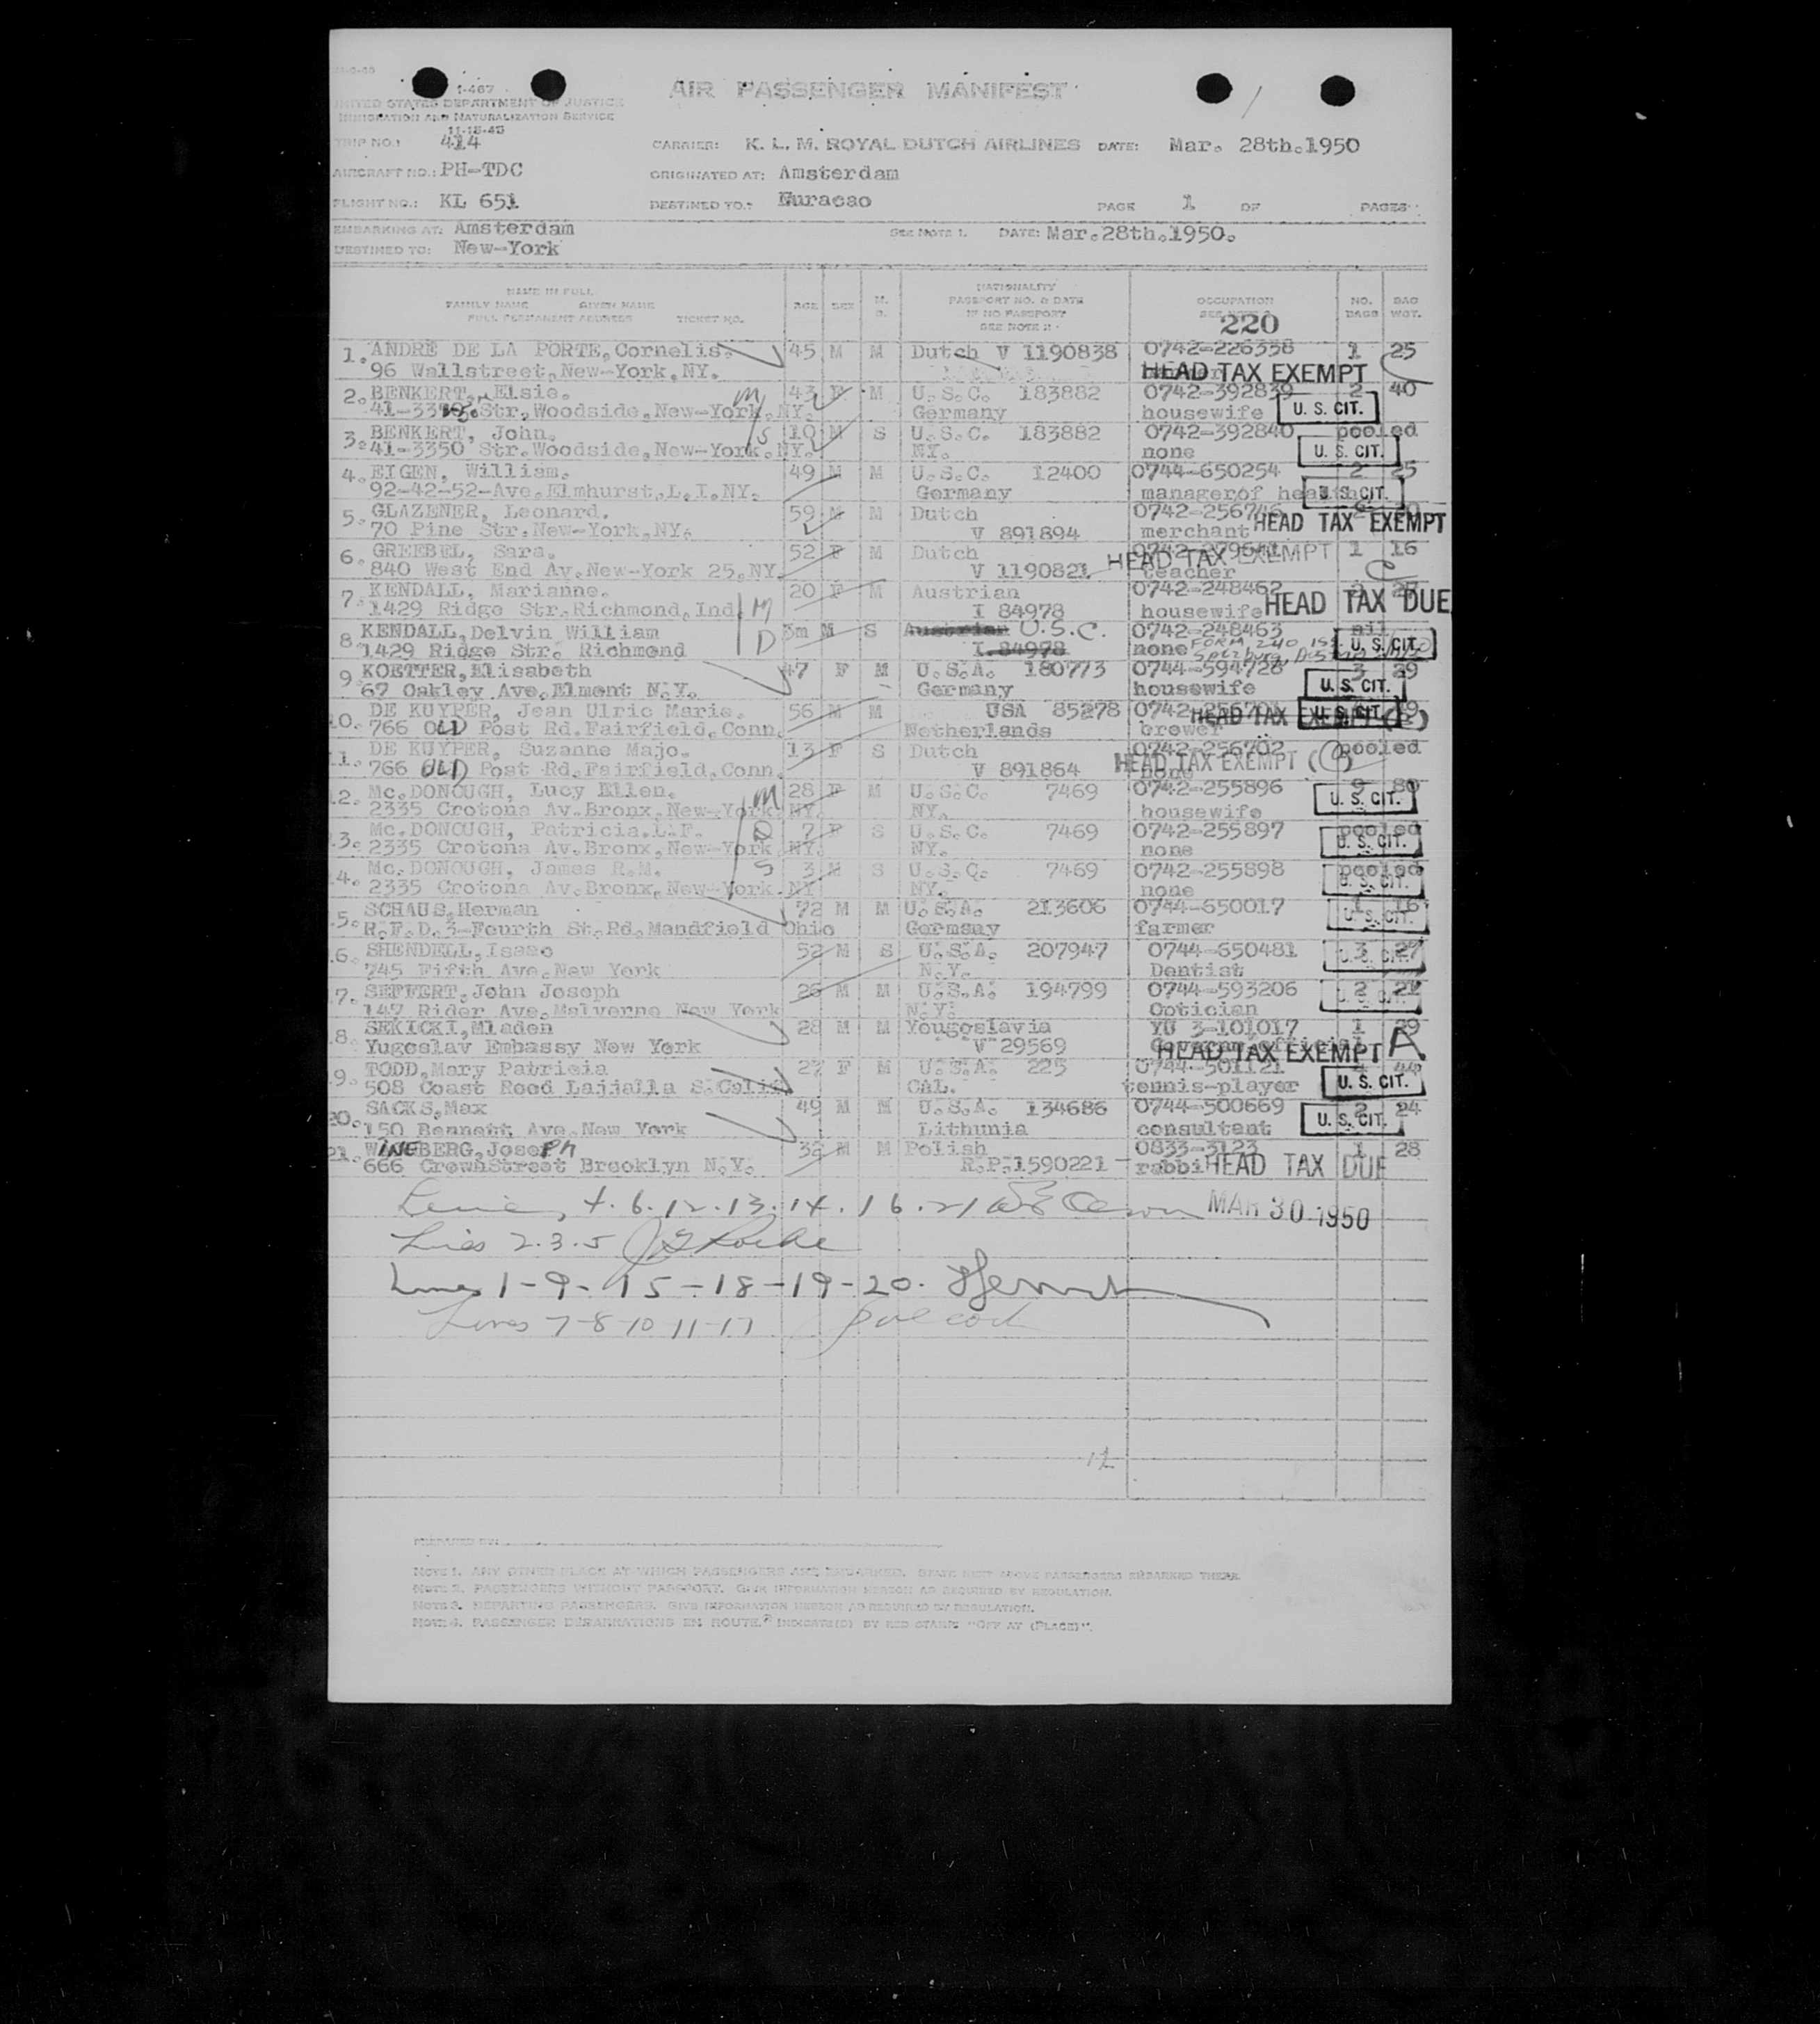 1-467
UNITED STATES DEPARTMENT OF JUSTICE
IMMIGRATION AND NATURALIZATION SERVICE
11-15-45
AIR PASSENGER MANIFEST
TRIP NO.: 414 CARRIER: K. L. M. ROYAL DUTCH AIRLINES DATE: Mar. 28th.1950
AIRCRAFT NO.: PH-TDC ORIGINATED AT: Amsterdam
FLIGHT NO.: KL 651 DESTINED TO: Curacao PAGE 1 OF PAGES
EMBARKING AT: Amsterdam SEE NOTE 1. DATE: Mar.28th.1950.
DESTINED TO: New-York
NAME IN FULL
FAMILY NAME GIVEN NAME
FULL PERMANENT ADDRESS TICKET NO.
AGE SEX M. S.
NATIONALITY
PASSPORT NO. & DATE
IF NO PASSPORT
SEE NOTE
OCCUPATION
220
NO. BAGS
BAG WGT.
1. ANDRE DE LA PORTE, Cornelis. 45 M M Dutch V 1190838 0742-226338 1 25
96 Wallstreet, New-York, NY. HEAD TAX EXEMPT
2. BENKERT, Elsie. M 43 F M U.S.C. 183882 0742-392839 2 40
Str, Woodside, New-York, NY. Germany housewife U. S. CIT.
3. BENKERT, John. S 10 M S U.S.C. 183882 0742-392840 pooled
41-3350 Str. Woodside, New-York. NY. NY. none U. S. CIT.
4. EIGEN, William. 49 M M U.S.C. 12400 0744-650254 2 25
92-42-52-Ave. Elmhurst, L.I. NY. Germany managerof U. S. CIT.
5. GLAZENER, Leonard. 59 M M Dutch 0742-256746
70 Pine Str. New-York, NY. V 891894 merchant HEAD TAX EXEMPT
6. GREEBEL, Sara. 52 F M Dutch 1 16
840 West End Av. New-York 25. NY. V 1190821 teacher HEAD TAX EXEMPT C
7. KENDALL, Marianne. 20 F M Austrian 0742-248462
1429 Ridge Str. Richmond, Ind M I 84978 housewife HEAD TAX DUE
8 KENDALL, Delvin William 3m M S Austrian U.S.C. 0742-248463 nil
1429 Ridge Str. Richmond D I.84978 none FORM 240 U. S. CIT.
9 KOETTER, Elisabeth 47 F M U.S.A. 180773 0744-594728 3 29
67 Oakley Ave. Elmont N.Y. Germany housewife U. S. CIT.
10. DE KUYPER, Jean Ulric Marie. 56 M M USA 85278
766 OLD Post Rd. Fairfield, Conn. Netherlands Grower HEAD TAX EXEMPT U. S. CIT.
11. DE KUYPER, Suzanne Majo. 13 F S Dutch 0742-256702 pooled
766 OLD Post Rd. Fairfield, Conn. V 891864 none HEAD TAX EXEMPT (C)
12. Mc. DONOUGH, Lucy Ellen. M 28 F M U.S.C. 7469 0742-255896 80
2335 Crotona Av. Bronx, New-York NY. NY. housewife U. S. CIT.
13. Mc. DONOUGH, Patricia.L.F. D 7 F S U.S.C. 7469 0742-255897 pooled
2335 Crotona Av. Bronx, New-York NY. NY. none U. S. CIT.
14. Mc. DONOUGH, James R.M. S 3 M S U.S.C. 7469 0742-255898 pooled
2335 Crotona Av. Bronx, New-York. NY NY. none U. S. CIT.
15. SCHAUS, Herman 72 M M U.S.A. 213606 0744-650017 1 16
R.F.D.3-Fourth St. Rd. Mandfield Ohio Germany farmer U. S. CIT.
16. SHENDELL, Isaac 52 M S U.S.A. 207947 0744-650481 3 27
745 Fifth Ave. New York N.Y. Dentist U. S. CIT.
17. SEFFERT, John Joseph 26 M M U.S.A. 194799 0744-593206 2 21
147 Rider Ave. Malverne New York N.Y. Optician U. S. CIT.
18. SEKICKI, Mladen 28 M M Yougoslavia YU 3-101017 1 29
Yugoslav Embassy New York V 29569 HEAD TAX EXEMPT A
19. TODD, Mary Patricia 27 F M U.S.A. 225 0744-501121 4 44
508 Coast Rood Lajjalla S. Calif CAL. tennis-player U. S. CIT.
20. SACKS, Max 49 M M U.S.A. 134686 0744-500669 2 24
150 Bennett Ave. New York Lithunia consultant U. S. CIT.
21. WINEBERG, JosePh 32 M M Polish 0833-3123 1 28
666 CrownStreet Brooklyn N.Y. R.P.1590221 rabbi HEAD TAX DUE
4. 6. 12. 13. 14. 16. 21 MAR 30 1950
2. 3. 5
Lines 1-9-15-18-19-20.
Lines 7-8-10 11-17
12
PREPARED BY:
NOTE 1. ANY OTHER PLACE AT WHICH PASSENGERS ARE EMBARKED. PASSENGERS EMBARKED THERE
NOTE 2. PASSENGERS WITHOUT PASSPORT. GIVE INFORMATION HEREON AS REQUIRED BY REGULATION.
NOTE 3. DEPARTING PASSENGERS. GIVE INFORMATION HEREON AS REQUIRED BY REGULATION.
NOTE 4. PASSENGER DEBARKATIONS EN ROUTE INDICATE(D) BY RED STAMP "OFF AT (PLACE)".